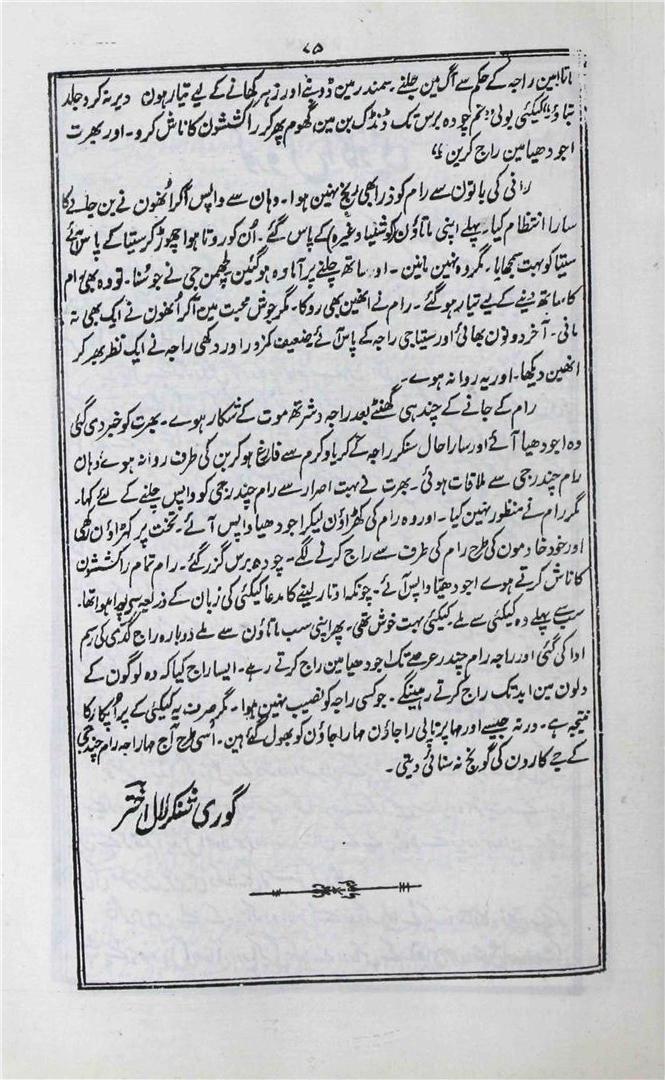 ۷۵
ماتا! مین راجہ کے حکم سے آگ مین جلنے سمندر مین ڈوبنے اور زہر کھانے کے لیے تیار ہون دیر نہ کرو جلد
بتاؤ" کیکئی بولی "تم چودہ برس تک ڈنڈک بن مین گھوم پھر کر راکششون کا ناش کرو۔ اور بھرت
اجودھیا مین راج کرین"
رانی کی باتون سے رام کو ذرا بھی رنج نہین ہوا۔ وہان سے واپس آکر اُنھون نے بن جانے کا
سارا انتظام کیا۔ پہلے اپنی ماتاؤن (کوشلیا وغیرہ) کے پاس گئے۔ اُن کو روتا ہوا چھوڑ کر سیتا کے پاس آئے
سیتا کو بہت سمجھایا۔ مگر وہ نہین مانین۔ اور ساتھ چلنے پر آمادہ ہوگئین لچھمن جی نے جو سُنا۔ تو وہ بھی رام
کا ساتھ دینے کے لیے تیار ہوگئے۔ رام نے انھین بھی روکا۔ مگر جوش محبت مین آکر اُنھون نے ایک بھی نہ
مانی۔ آخر دونون بھائی اور سیتا جی راجہ کے پاس آئے ضعیف کمزور اور دکھی راجہ نے ایک نظر بھر کر
انھین دیکھا۔ اور یہ روانہ ہوے۔
رام کے جانے کے چند ہی گھنٹے بعد راجہ دشرتھ موت کے شکار ہوے۔ بھرت کو خبر دی گئی
وہ اجودھیا آئے اور سارا حال سنکر راجہ کے کریا و کرم سے فارغ ہو کر بن کی طرف روانہ ہوے وہان
رام چندر جی سے ملاقات ہوئی۔ بھرت نے بہت اصرار سے رام چندر جی کو واپس چلنے کے لئے کہا۔
مگر رام نے منظور نہین کیا۔ اور وہ رام کی کھڑاؤن لیکر اجودھیا واپس آئے۔ تخت پر کھڑاؤن رکھی
اور خود خادمون کی طرح رام کی طرف سے راج کرنے لگے۔ چودہ برس گزر گئے۔ رام تمام راکششون
کا ناش کرتے ہوے اجودھیا واپس آئے۔ چونکہ اوتار لینے کا مدعا کیکئی کی زبان کے ذریعہ سے پورا ہوا تھا۔
سب سے پہلے وہ کیکئی سے ملے کیکئی بہت خوش تھی۔ پھر اپنی سب ماتاؤن سے ملے دوبارہ راج گدّی کی رسم
ادا کی گئی اور راجہ رام چندر عرصے تک اجودھیا مین راج کرتے رہے۔ ایسا راج کیا کہ وہ لوگون کے
دلون مین ابد تک راج کرتے رہینگے۔ جو کسی راجہ کو نصیب نہین ہوا۔ مگر صرف یہ کیکئی کے پر اُپکار کا
نتیجہ ہے۔ ورنہ جیسے اور مہا پرتاپی راجاؤن مہاراجاؤن کو بھول گئے ہین۔ اُسی طرح آج مہاراجہ رام چندر جی
کے جے کارون کی گونج نہ سنائی دیتی۔
گوری شنکر لال اختر